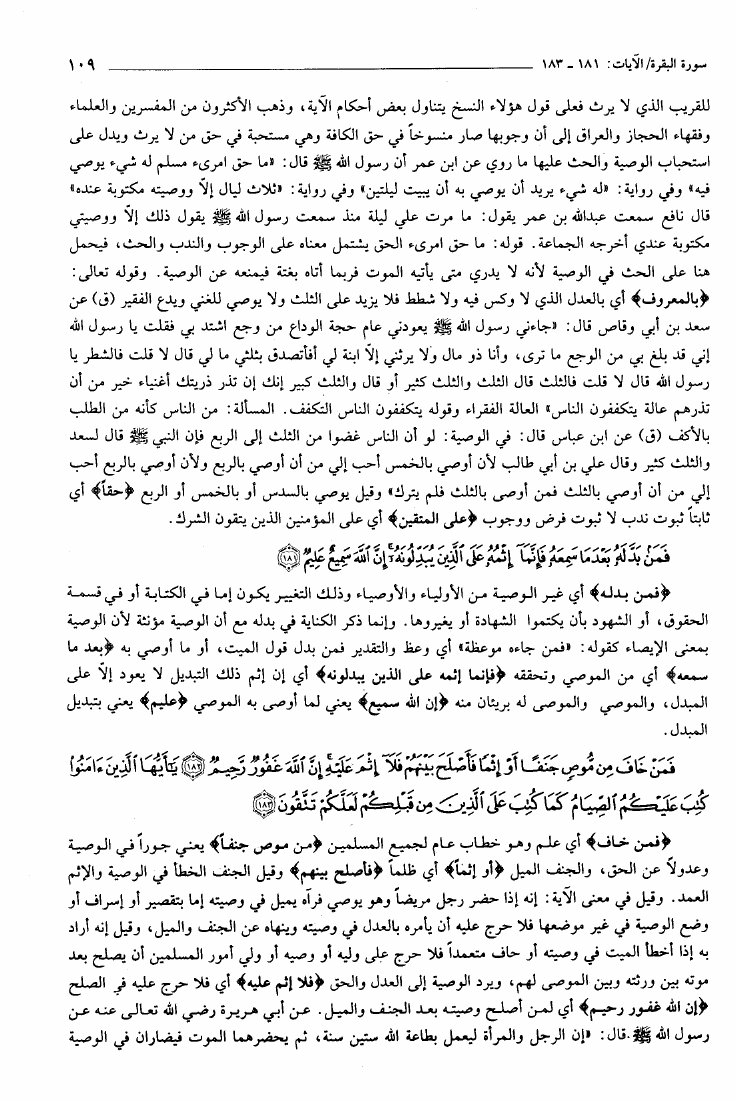 سورة البقرة/الآيات: ١٨١ ـ ١٨٣ ١٠٩
للقريب الذي لا يرث فعلى قول هؤلاء النسخ يتناول بعض أحكام الآية، وذهب الأكثرون من المفسرين والعلماء
وفقهاء الحجاز والعراق إلى أن وجوبها صار منسوخاً في حق الكافة وهي مستحبة في حق من لا يرث ويدل على
استحباب الوصية والحث عليها ما روي عن ابن عمر أن رسول الله ﷺ قال: «ما حق امرىء مسلم له شيء يوصي
فيه» وفي رواية: «له شيء يريد أن يوصي به أن يبيت ليلتين» وفي رواية: «ثلاث ليال إلاّ ووصيته مكتوبة عنده»
قال نافع سمعت عبدالله بن عمر يقول: ما مرت علي ليلة منذ سمعت رسول الله ﷺ يقول ذلك إلاّ ووصيتي
مكتوبة عندي أخرجه الجماعة. قوله: ما حق امرىء الحق يشتمل معناه على الوجوب والندب والحث، فيحمل
هنا على الحث في الوصية لأنه لا يدري متى يأتيه الموت فربما أتاه بغتة فيمنعه عن الوصية. وقوله تعالى:
﴿بالمعروف﴾ أي بالعدل الذي لا وكس فيه ولا شطط فلا يزيد على الثلث ولا يوصي للغني ويدع الفقير (ق) عن
سعد بن أبي وقاص قال: «جاءني رسول الله ﷺ يعودني عام حجة الوداع من وجع اشتد بي فقلت يا رسول الله
إني قد بلغ بي من الوجع ما ترى، وأنا ذو مال ولا يرثني إلاّ ابنة لي أفأتصدق بثلثي ما لي قال لا قلت فالشطر يا
رسول الله قال لا قلت فالثلث قال الثلث والثلث كثير أو قال والثلث كبير إنك إن تذر ذريتك أغنياء خير من أن
تذرهم عالة يتكففون الناس» العالة الفقراء وقوله يتكففون الناس التكفف. المسألة: من الناس كأنه من الطلب
بالأكف (ق) عن ابن عباس قال: في الوصية: لو أن الناس غضوا من الثلث إلى الربع فإن النبي ﷺ قال لسعد
والثلث كثير وقال علي بن أبي طالب لأن أوصي بالخمس أحب إلي من أن أوصي بالربع ولأن أوصي بالربع أحب
إلي من أن أوصي بالثلث فمن أوصى بالثلث فلم يترك» وقيل يوصي بالسدس أو بالخمس أو الربع ﴿حقاً﴾ أي
ثابتاً ثبوت ندب لا ثبوت فرض ووجوب ﴿على المتقين﴾ أي على المؤمنين الذين يتقون الشرك.
فَمَنۢ بَدَّلَهُۥ بَعْدَ مَا سَمِعَهُۥ فَإِنَّمَآ إِثْمُهُۥ عَلَى ٱلَّذِينَ يُبَدِّلُونَهُۥٓ إِنَّ ٱللَّهَ سَمِيعٌ عَلِيمٌ ﴿١٨١﴾
﴿فمن بدله﴾ أي غير الوصية من الأولياء والأوصياء وذلك التغيير يكون إما في الكتابة أو في قسمة
الحقوق، أو الشهود بأن يكتموا الشهادة أو يغيروها. وإنما ذكر الكناية في بدله مع أن الوصية مؤنثة لأن الوصية
بمعنى الإيصاء كقوله: «فمن جاءه موعظة» أي وعظ والتقدير فمن بدل قول الميت، أو ما أوصي به ﴿بعد ما
سمعه﴾ أي من الموصي وتحققه ﴿فإنما إثمه على الذين يبدلونه﴾ أي إن إثم ذلك التبديل لا يعود إلاّ على
المبدل، والموصي والموصى له بريئان منه ﴿إن الله سميع﴾ يعني لما أوصى به الموصي ﴿عليم﴾ يعني بتبديل
المبدل.
فَمَنْ خَافَ مِن مُّوصٍ جَنَفًا أَوْ إِثْمًا فَأَصْلَحَ بَيْنَهُمْ فَلَآ إِثْمَ عَلَيْهِ إِنَّ ٱللَّهَ غَفُورٌ رَّحِيمٌ ﴿١٨٢﴾ يَٰٓأَيُّهَا ٱلَّذِينَ ءَامَنُوا۟
كُتِبَ عَلَيْكُمُ ٱلصِّيَامُ كَمَا كُتِبَ عَلَى ٱلَّذِينَ مِن قَبْلِكُمْ لَعَلَّكُمْ تَتَّقُونَ ﴿١٨٣﴾
﴿فمن خاف﴾ أي علم وهو خطاب عام لجميع المسلمين ﴿من موص جنفاً﴾ يعني جوراً في الوصية
وعدولاً عن الحق، والجنف الميل ﴿أو إثماً﴾ أي ظلماً ﴿فأصلح بينهم﴾ وقيل الجنف الخطأ في الوصية والإثم
العمد. وقيل في معنى الآية: إنه إذا حضر رجل مريضاً وهو يوصي فرآه يميل في وصيته إما بتقصير أو إسراف أو
وضع الوصية في غير موضعها فلا حرج عليه أن يأمره بالعدل في وصيته وينهاه عن الجنف والميل، وقيل إنه أراد
به إذا أخطأ الميت في وصيته أو حاف متعمداً فلا حرج على وليه أو وصيه أو ولي أمور المسلمين أن يصلح بعد
موته بين ورثته وبين الموصى لهم، ويرد الوصية إلى العدل والحق ﴿فلا إثم عليه﴾ أي فلا حرج عليه في الصلح
﴿إن الله غفور رحيم﴾ أي لمن أصلح وصيته بعد الجنف والميل. عن أبي هريرة رضي الله تعالى عنه عن
رسول الله ﷺ قال: «إن الرجل والمرأة ليعمل بطاعة الله ستين سنة، ثم يحضرهما الموت فيضاران في الوصية